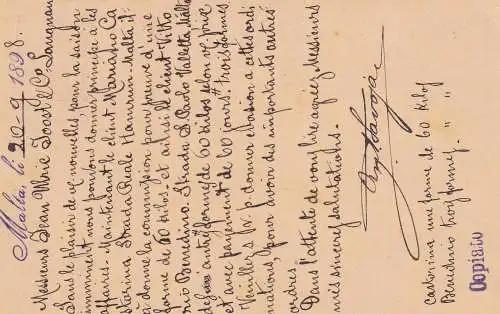 Malta, li 20-9-1898.
Messieurs Jean Marie Toost & Co. Lougnan
Sans le plaisir de vos nouvelles, pour la saison
imminent nous pouvons donner principe à les
affaires. Maintenant le client Mariano Ca
storina Strada Reale Hamrun-Malta il
a donné la commission pour preuve d'une
forme de 60 kilos, et ainsi le client Vitto
rio Benedinio. Strada S. Paolo Valletta, Malta
de autres formes de 60 kilos selon
et avec payement de 60 jours". trois formes.
Veuillez p. donner evasion a cettes ordi
nations, pour avoir des importants autres
ordres.
Dans l'attente de vous lire agréez, Messieurs
mes sinceres salutations.
Castorina une forme de 60 kilos
Benedinio trois formes " "
Copiato